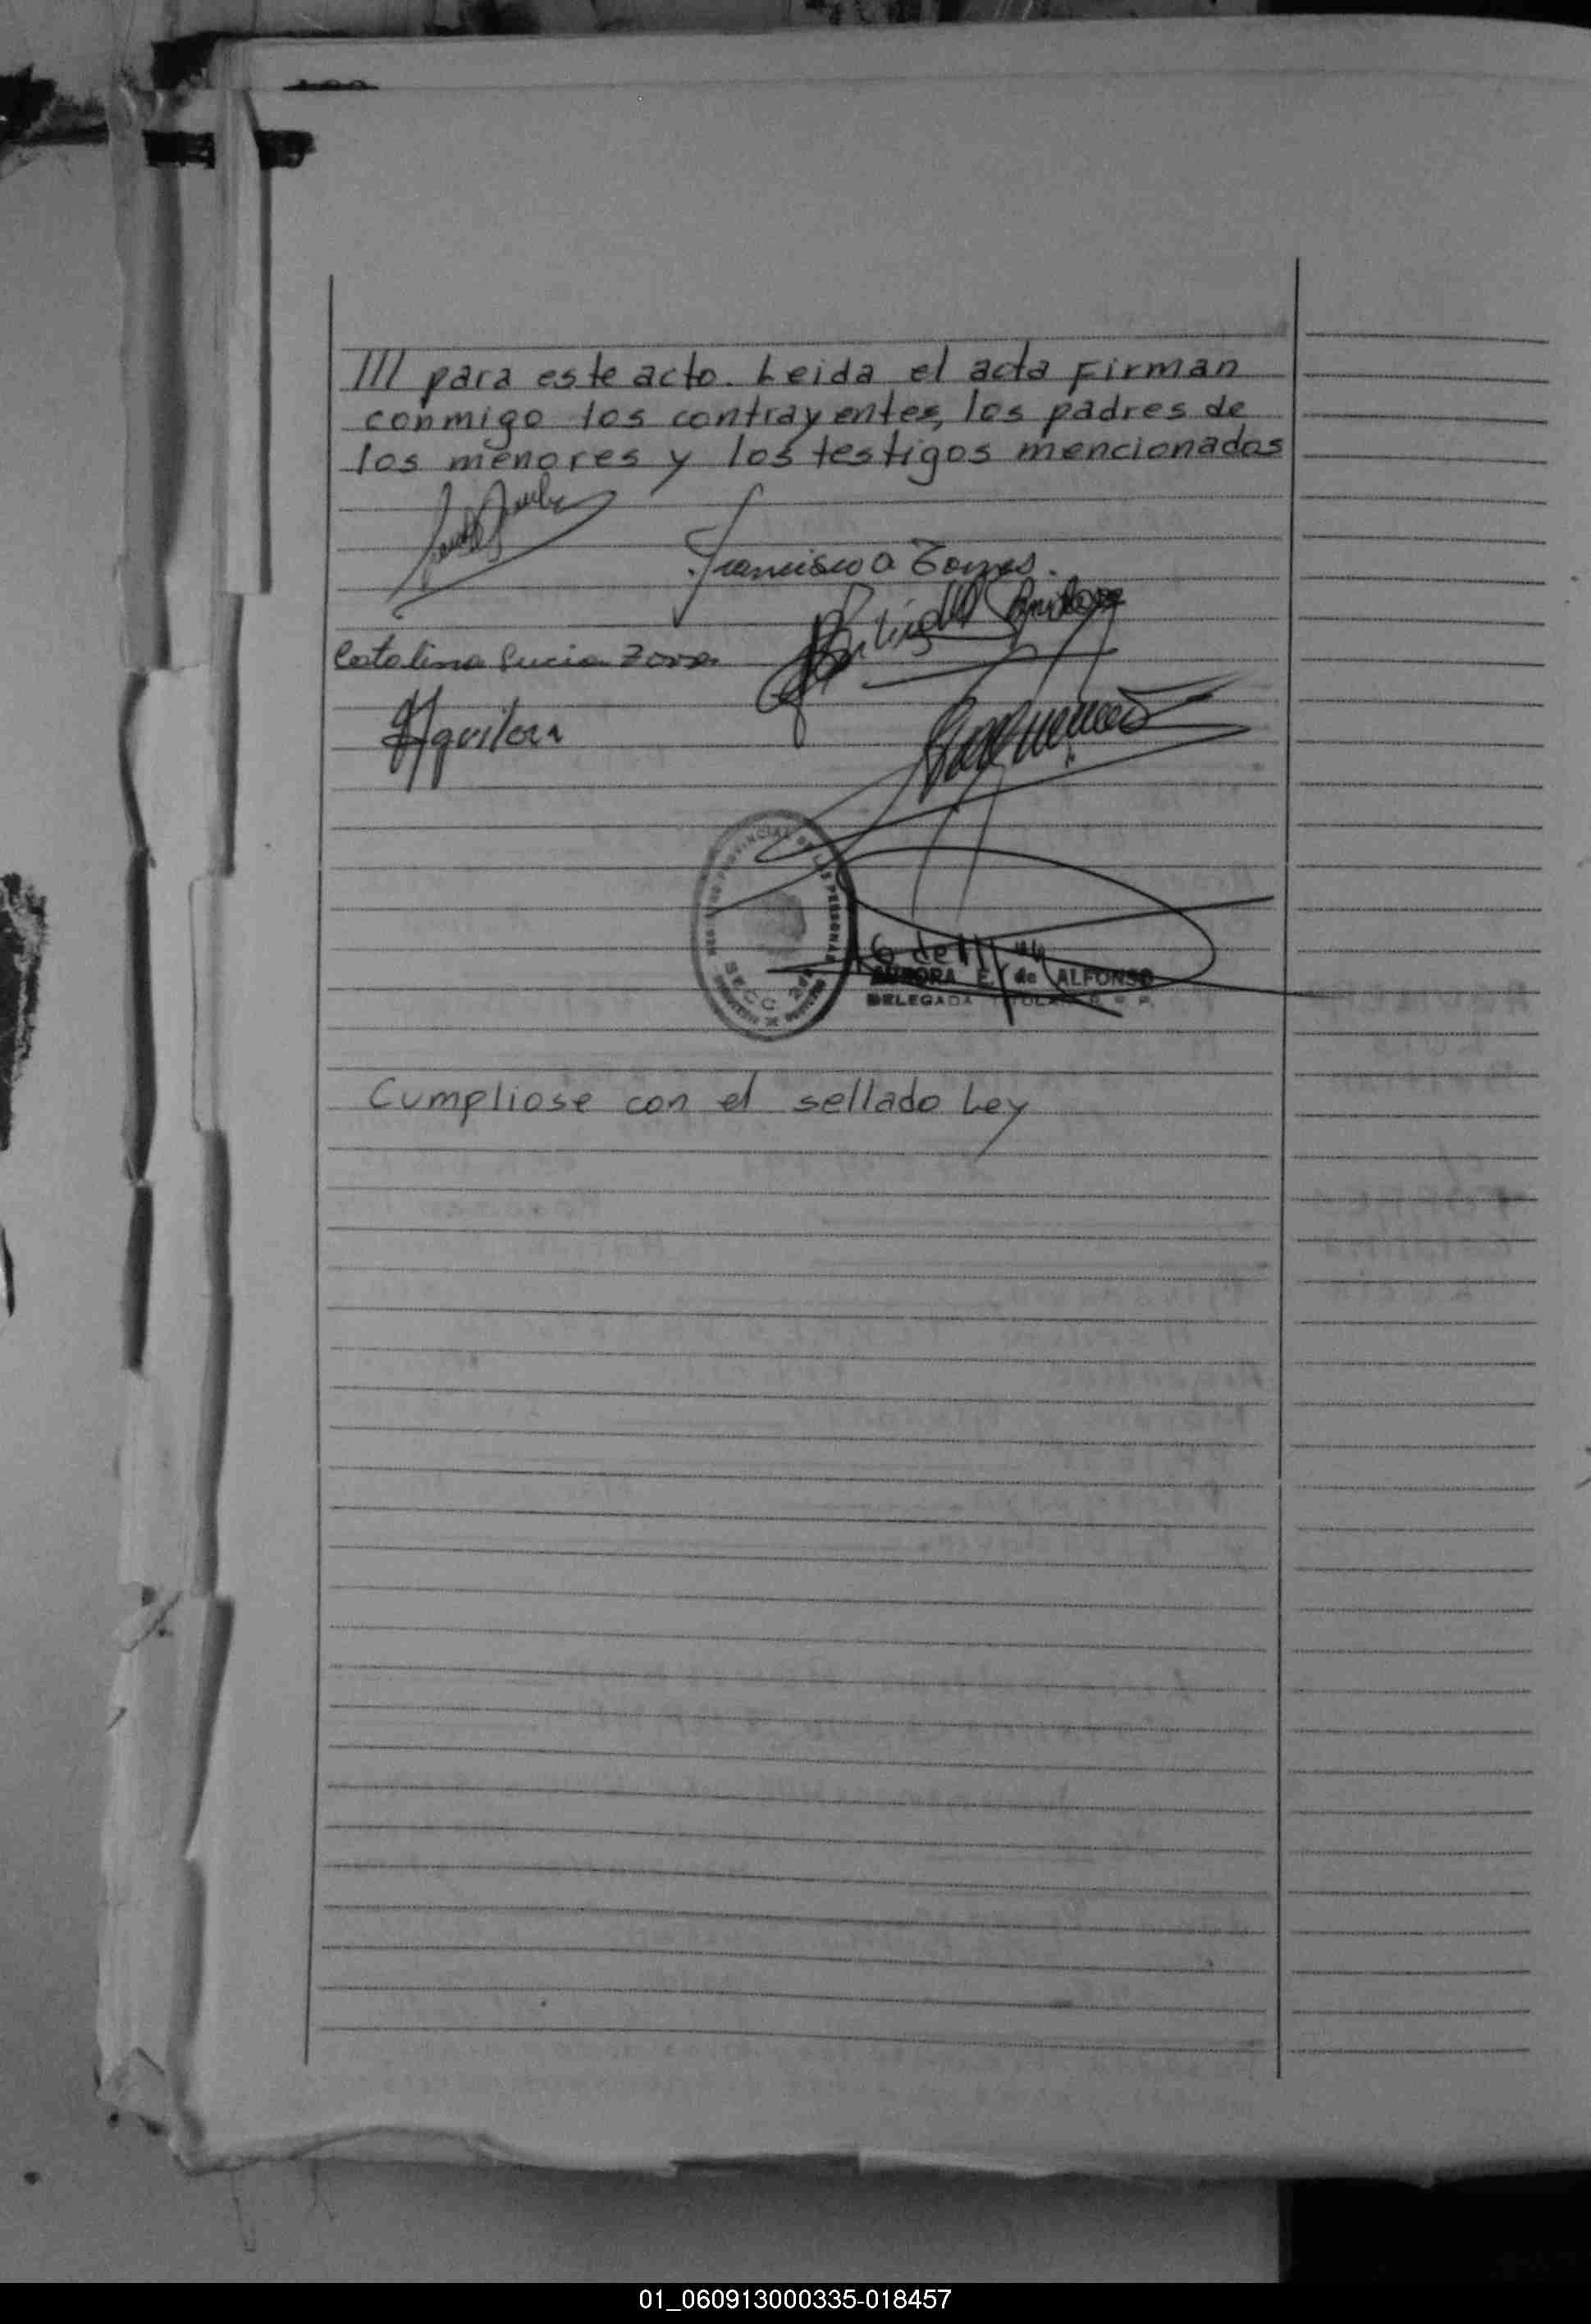 III para este acto. Leida el acta Firman
conmigo los contrayentes, los padres de
los menores y los testigos mencionados
Francisco A Torres.
Catalina Lucia Torres
Aguilera
REGISTRO PROVINCIAL DE LAS PERSONAS
SECC
AURORA E. de ALFONSO
DELEGADA TITULAR R. P.
Cumpliose con el sellado Ley
01_060913000335-018457